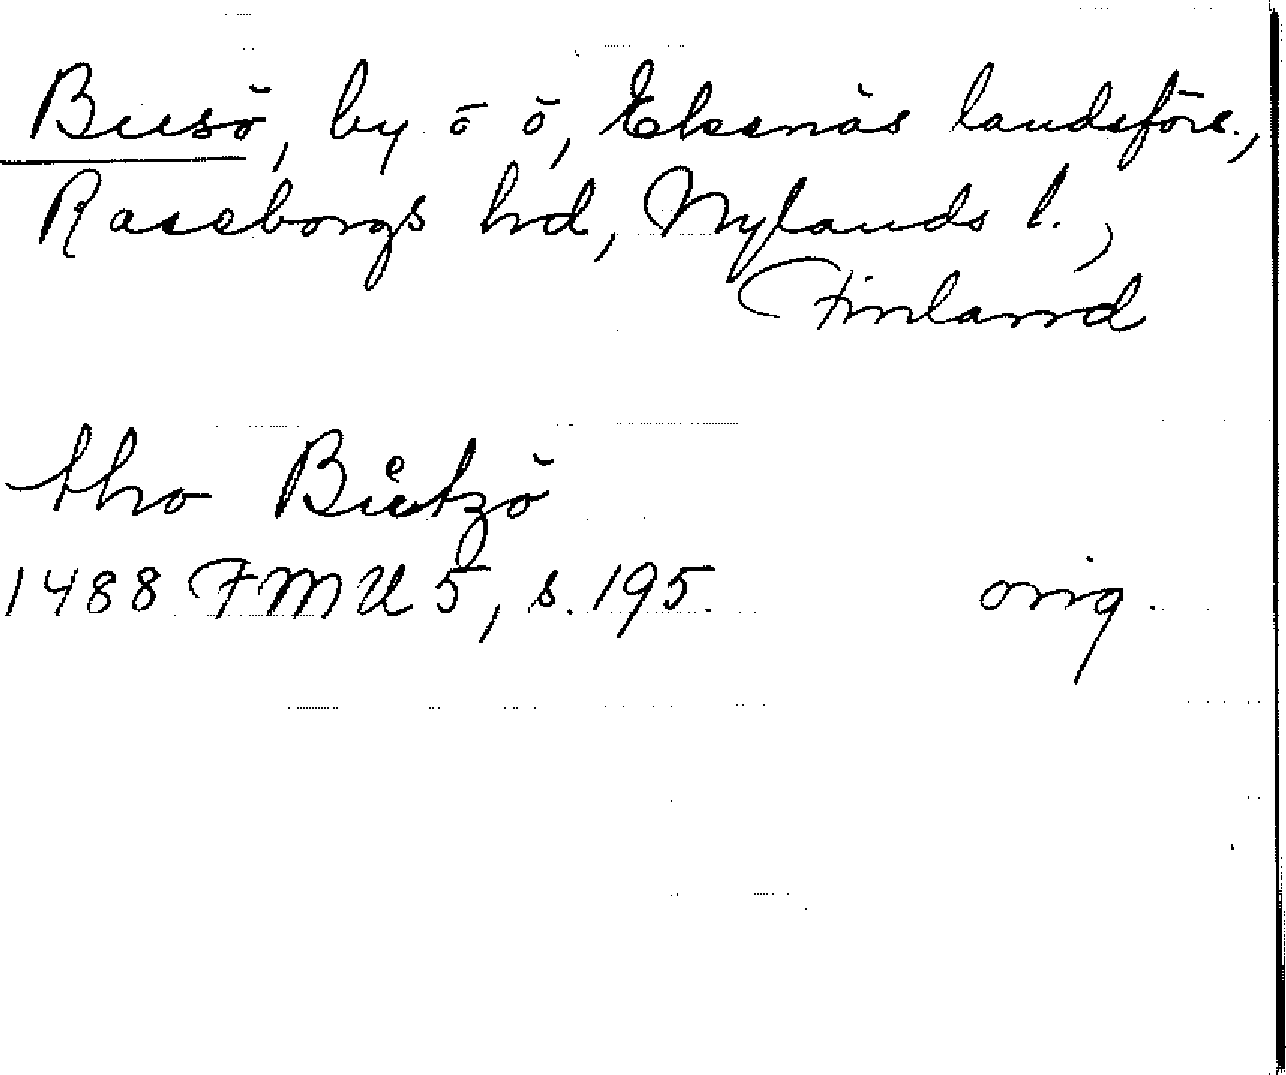 Busö, by o ö, Ekenäs landsförs.,
Raseborgs hd, Nylands l.,
Finland
tho Bůtzö
1488 FMU 5, s. 195. orig.